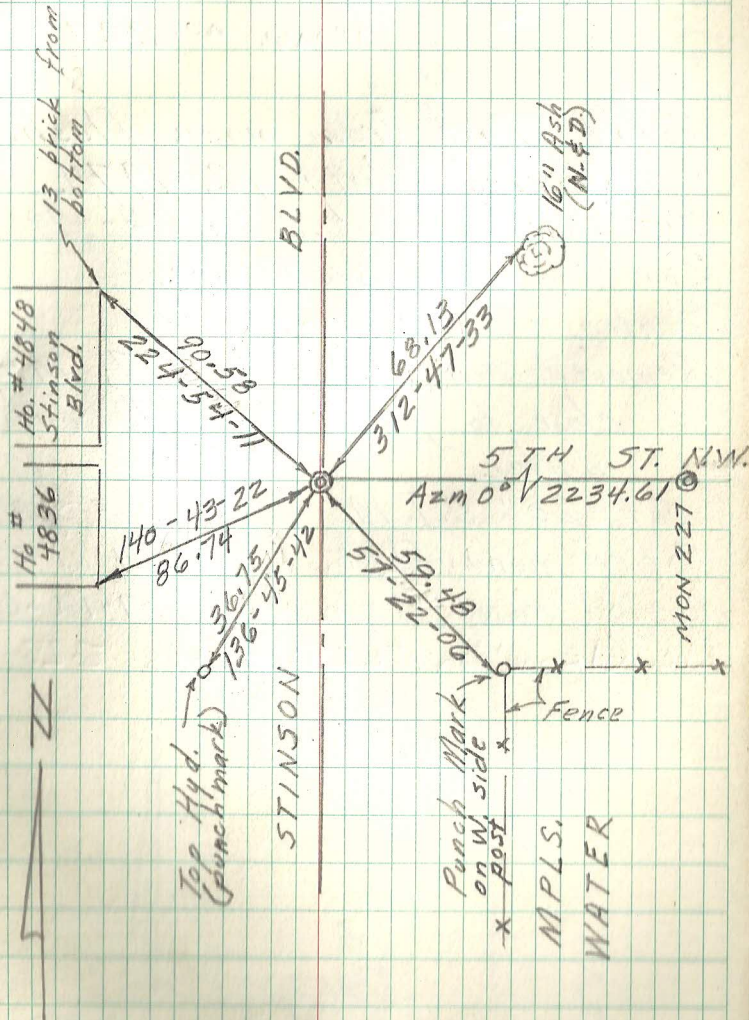 13 brick from
bottom
Ho. # 4848
Stinson
Blvd.
Ho #
4836
BLVD.
16" Ash
(N. & D.)
90.58
224-54-11
68.13
312-47-33
140-43-22
86.74
36.75
136-45-42
5 TH ST. N.W.
Azm 0° 2234.61
MON 227
59.40
N
Top Hyd.
(punch mark)
STINSON
Punch Mark
on W. side
post
Fence
MPLS.
WATER